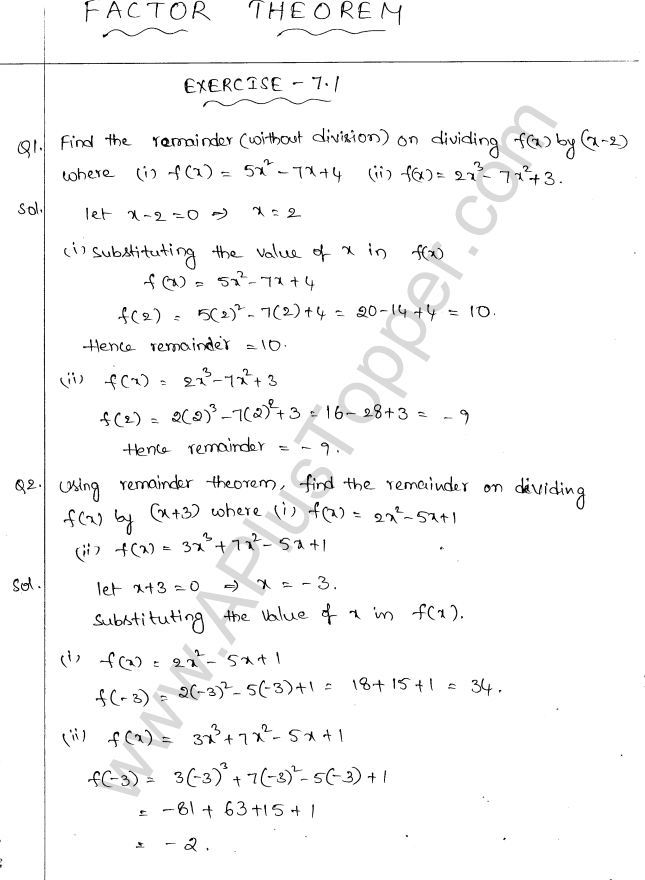 FACTOR THEOREM
EXERCISE - 7.1
Q1. Find the remainder (without division) on dividing f(x) by (x-2)
where (i) f(x) = 5x² - 7x + 4 (ii) f(x) = 2x³ - 7x² + 3.
Sol. let x-2=0 ⇒ x = 2
(i) Substituting the value of x in f(x)
f(x) = 5x² - 7x + 4
f(2) = 5(2)² - 7(2) + 4 = 20 - 14 + 4 = 10.
Hence remainder = 10.
(ii) f(x) = 2x³ - 7x² + 3
f(2) = 2(2)³ - 7(2)² + 3 = 16 - 28 + 3 = -9
Hence remainder = -9.
Q2. Using remainder theorem, find the remainder on dividing
f(x) by (x+3) where (i) f(x) = 2x² - 5x + 1
(ii) f(x) = 3x³ + 7x² - 5x + 1
Sol. let x+3=0 ⇒ x = -3.
Substituting the value of x in f(x).
(i) f(x) = 2x² - 5x + 1
f(-3) = 2(-3)² - 5(-3) + 1 = 18 + 15 + 1 = 34.
(ii) f(x) = 3x³ + 7x² - 5x + 1
f(-3) = 3(-3)³ + 7(-3)² - 5(-3) + 1
= -81 + 63 + 15 + 1
= -2.
www.APlusTopper.com